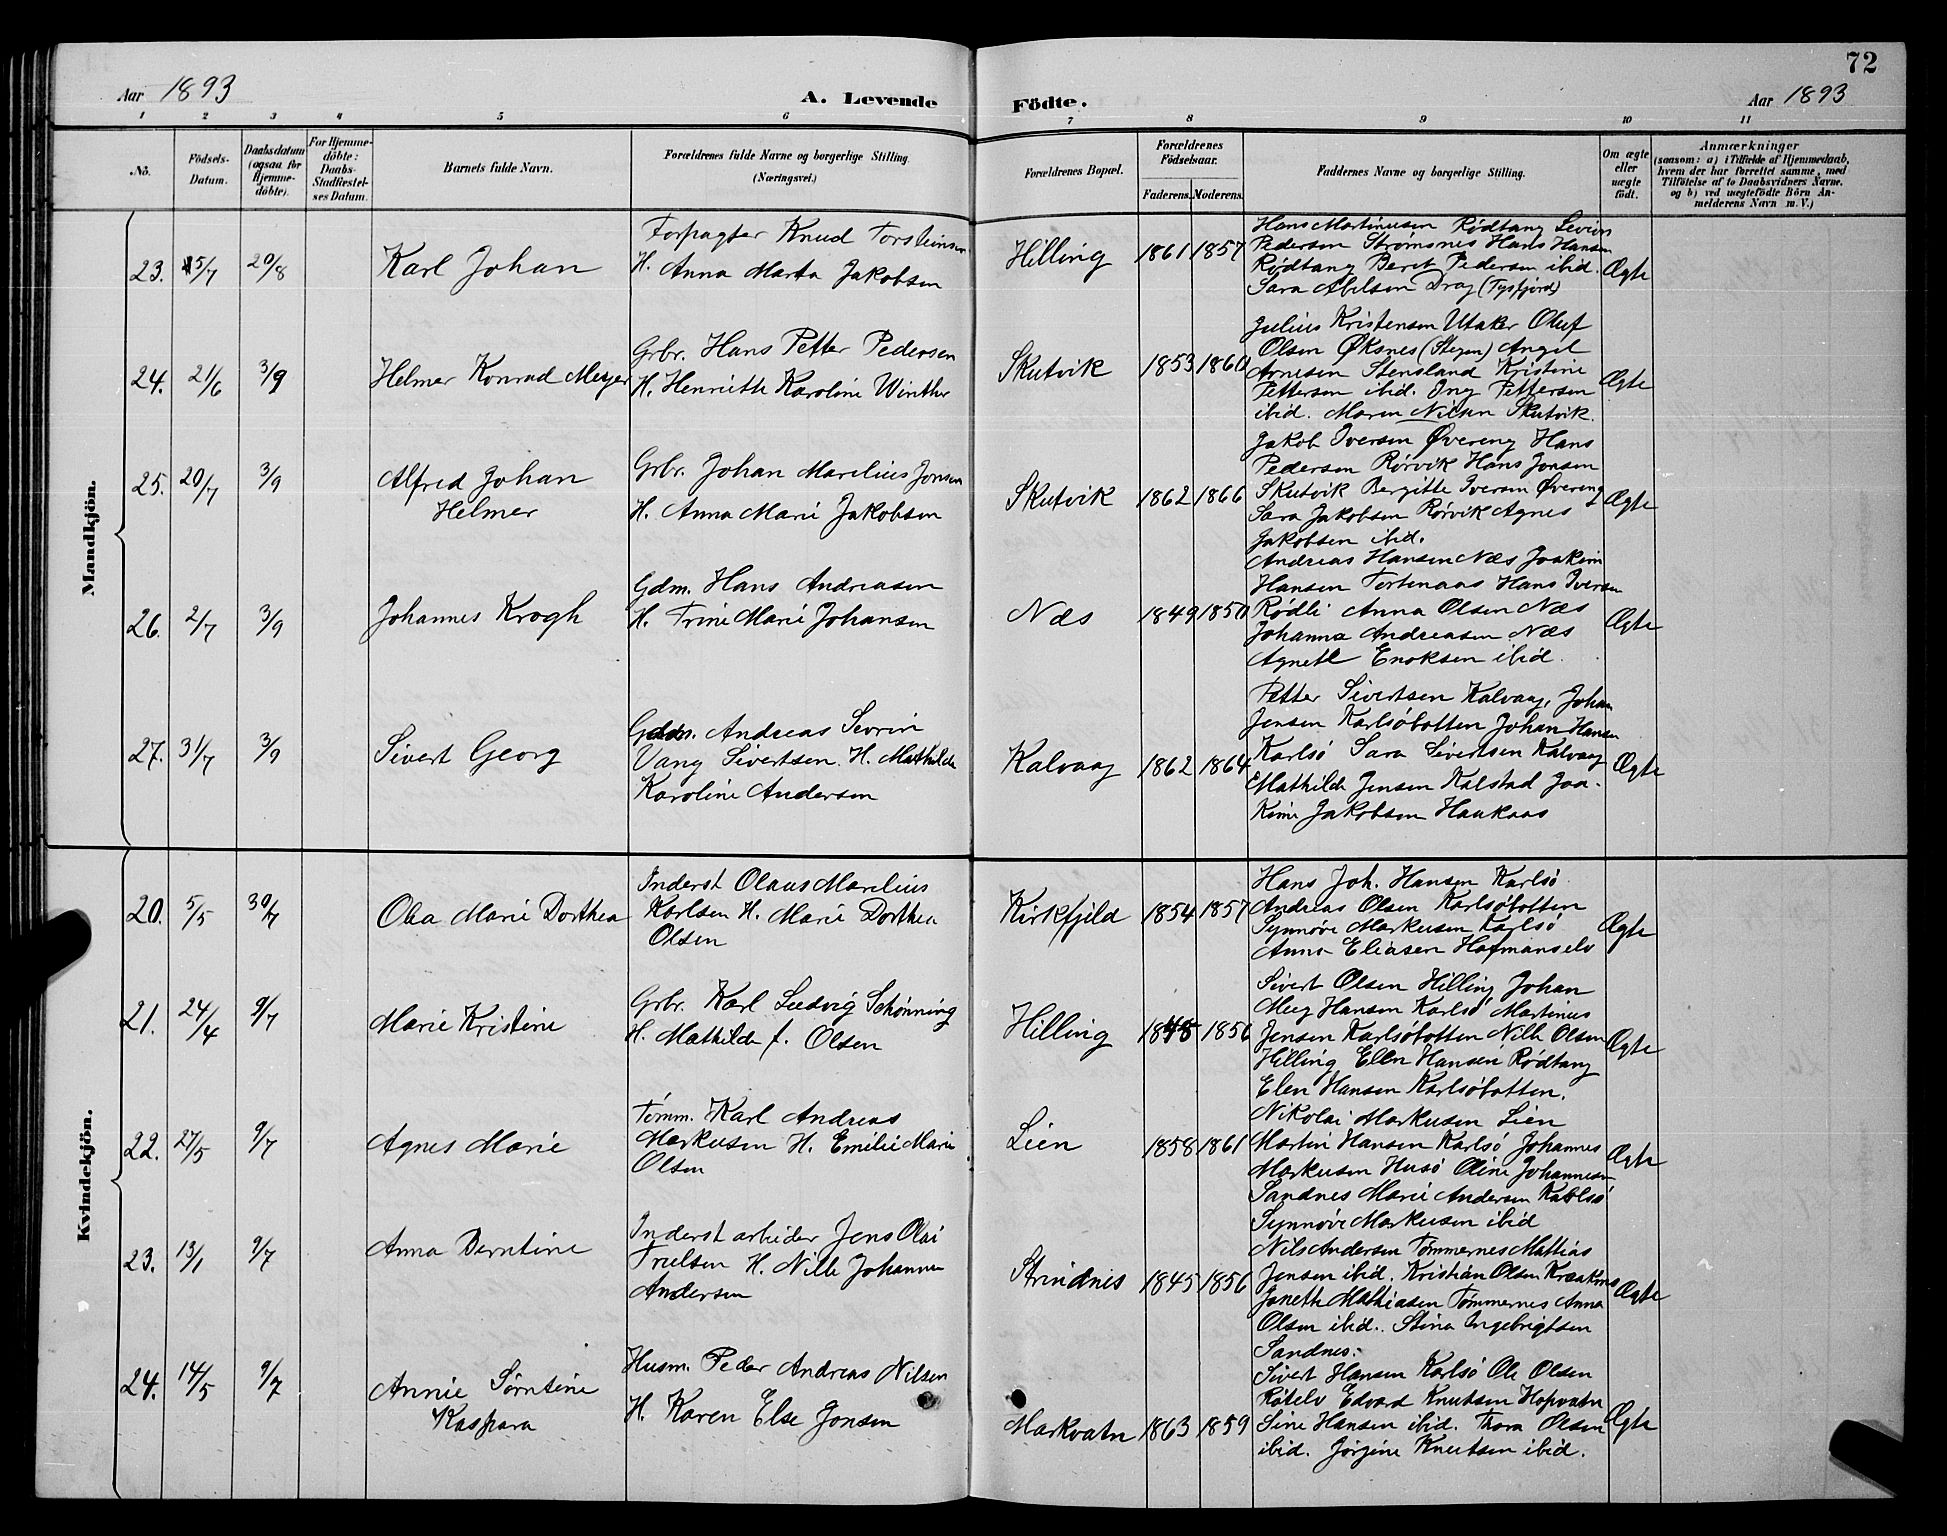 72
Aar 1893 A. Levende Födte. Aar 1893
1 2 3 4 5 6 7 8 9 10 11
No. Födsels-Datum. Daabsdatum (ogsaa for Hjemme-döbte). For Hjemme-döbte: Daabs-Stadfæstel-ses Datum. Barnets fulde Navn. Forældrenes fulde Navne og borgerlige Stilling. (Næringsvei.) Forældrenes Bopæl. Forældrenes Födselsaar. Faderens. Moderens. Faddernes Navne og borgerlige Stilling. Om ægte eller uægte födt. Anmærkninger
(saasom: a) i Tilfælde af Hjemmedaab,
hvem der har forrettet samme, med
Tilföielse af to Daabsvidners Navne,
og b) ved uægtefödte Börn An-
melderens Navn m. V.)
Mandkjön.
23. 15/7 20/8 Karl Johan
Forpagter Knud Torsteinsen
H. Anna Marta Jakobsen
Hilling 1861 1857
Hans Martinusen Rødtang
Pedersen Strømsnes Hans Hansen
Rødtang Beret Pedersen ibid.
Sara Abelsen Drag (Tysfjord)
Ægte
24. 21/6 3/9 Helmer Konrad Meyer
Grbr. Hans Petter Pedersen
H. Henriette Karoline Winther
Skutvik 1853 1860
Julius Kristensen Utaker Oluf
Olsen Øksnes (Stegen) Angel
Arnesen Stensland Kristine
Pettersen ibid. Ing Pettersen
ibid. Maren Nilsen Skutvik.
Ægte
25. 20/7 3/9 Alfred Johan
Helmer
Grbr. Johan Marelius Jonsen
H. Anna Marie Jakobsen
Skutvik 1862 1866
Jakob Iversen Øvereng Hans
Pedersen Rørvik Hans Jonsen
Skutvik Bergitte Iversen Øvereng
Sara Jakobsen Rørvik Agnes
Jakobsen ibid.
Ægte
26. 2/7 3/9 Johannes Krogh
Gdm. Hans Andreasen
H. Trine Marie Johansen
Næs 1849 1850
Andreas Hansen Næs Joakim
Hansen Tortenaas Hans Iversen
Rødli Anna Olsen Næs
Johanna Andreasen Næs
Agnete Enoksen ibid.
Ægte
27. 31/7 3/9 Sivert Georg
Gdm. Andreas Sevrin
Vang Sivertsen. H. Mathilde
Karoline Andersen
Kalvaag 1862 1864
Petter Sivertsen Kalvaag, Johan
Jensen Karlsøbotten Johan Hansen
Karlsø Sara Sivertsen Kalvaag
Mathilde Jensen Kalstad Joa-
kime Jakobsen Haukaas
Ægte
Kvindekjön.
20. 5/5 30/7 Olea Marie Dorthea
Inderst Olaus Marelius
Karlsen H. Marie Dorthea
Olsen
Kirkfjeld 1854 1857
Hans Joh. Hansen Karlsø
Andreas Olsen Karlsøbotten
Synnøve Markusen Karlsø
Anna Eliasen Hofmanselv
Ægte
21. 24/4 9/7 Marie Kristine
Grbr. Karl Ludvig Schønning
H. Mathilde f. Olsen
Hilling 1845 1856
Sivert Olsen Hilling Johan
Mey Hansen Karlsø Martinus
Jensen Karlsøbotten Nille Olsen
Hilling Ellen Hansen Rødtang
Elen Hansen Karlsøbotten.
Ægte
22. 27/5 9/7 Agnes Marie
Tømm. Karl Andreas
Markusen H. Emilie Marie
Olsen
Lien 1858 1861
Nikolai Markusen Lien
Martin Hansen Karlsø Johannes
Markusen Husø Oline Johannesen
Sandnes Marie Andersen Karlsø
Synnøve Markusen ibid
Ægte
23. 13/1 9/7 Anna Berntine
Inderst arbeider Jens Olai
Trulsen H. Nille Johanna
Andersen
Strindnes 1845 1856
Nils Andersen Tømmernes Mattias
Jensen ibid. Kristian Olsen
Janette Mathiasen Tømmernes Anna
Olsen ibid. Stina Ingebrigtsen
Sandnes.
Ægte
24. 14/5 9/7 Annie Sørntine
Kaspara
Husm. Peder Andreas Nilsen
H. Karen Else Jonsen
Markvatn 1863 1859
Sivert Hansen Karlsø Ole Olsen
Røtelv Edvard Knutsen Hopvatn
Sine Hansen ibid. Thora Olsen
ibid. Jørgine Knutsen ibid.
Ægte